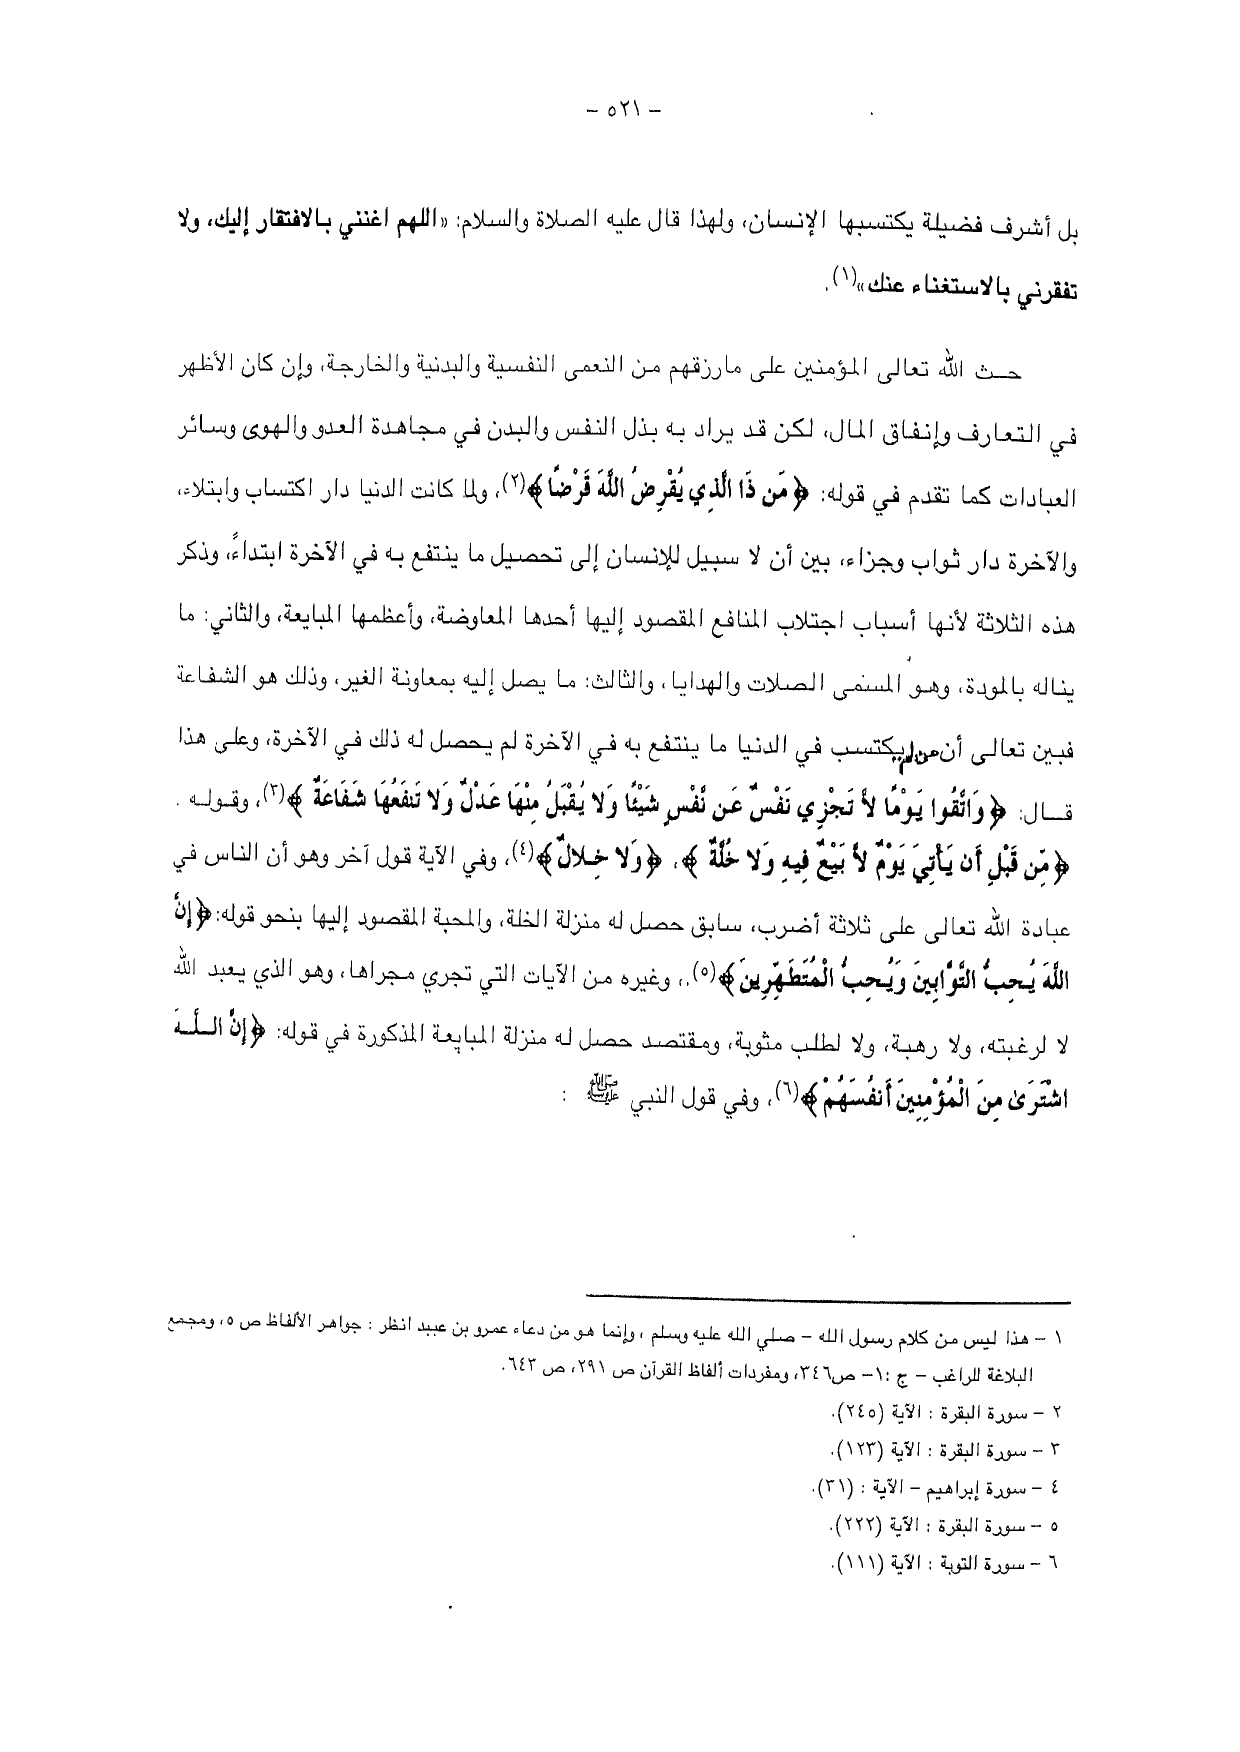 – ٥٢١ –
بل أشرف فضيلة يكتسبها الإنسان، ولهذا قال عليه الصلاة والسلام: «اللهم اغنني بالافتقار إليك، ولا
تفقرني بالاستغناء عنك»(١).
حث الله تعالى المؤمنين على مارزقهم من النعمى النفسية والبدنية والخارجة، وإن كان الأظهر
في التعارف وإنفاق المال، لكن قد يراد به بذل النفس والبدن في مجاهدة العدو والهوى وسائر
العبادات كما تقدم في قوله: ﴿مَن ذَا الَّذِي يُقْرِضُ اللَّهَ قَرْضًا﴾(٢)، ولما كانت الدنيا دار اكتساب وابتلاء،
والآخرة دار ثواب وجزاء، بين أن لا سبيل للإنسان إلى تحصيل ما ينتفع به في الآخرة ابتداءً، وذكر
هذه الثلاثة لأنها أسباب اجتلاب المنافع المقصود إليها أحدها المعاوضة، وأعظمها المبايعة، والثاني: ما
يناله بالمودة، وهو المسمى الصلات والهدايا، والثالث: ما يصل إليه بمعاونة الغير، وذلك هو الشفاعة
فبين تعالى أن من لم يكتسب في الدنيا ما ينتفع به في الآخرة لم يحصل له ذلك في الآخرة، وعلى هذا
قال: ﴿وَاتَّقُوا يَوْمًا لاَّ تَجْزِي نَفْسٌ عَن نَّفْسٍ شَيْئًا وَلا يُقْبَلُ مِنْهَا عَدْلٌ وَلا تَنفَعُهَا شَفَاعَةٌ﴾(٣)، وقوله .
﴿مِّن قَبْلِ أَن يَأْتِيَ يَوْمٌ لاَّ بَيْعٌ فِيهِ وَلا خُلَّةٌ﴾، ﴿وَلا خِلالٌ﴾(٤)، وفي الآية قول آخر وهو أن الناس في
عبادة الله تعالى على ثلاثة أضرب، سابق حصل له منزلة الخلة، والمحبة المقصود إليها بنحو قوله: ﴿إِنَّ
اللَّهَ يُحِبُّ التَّوَّابِينَ وَيُحِبُّ الْمُتَطَهِّرِينَ﴾(٥).، وغيره من الآيات التي تجري مجراها، وهو الذي يعبد الله
لا لرغبته، ولا رهبة، ولا لطلب مثوبة، ومقتصد حصل له منزلة المبايعة المذكورة في قوله: ﴿إِنَّ اللَّهَ
اشْتَرَىٰ مِنَ الْمُؤْمِنِينَ أَنفُسَهُمْ﴾(٦)، وفي قول النبي ﷺ :
١ – هذا ليس من كلام رسول الله – صلي الله عليه وسلم ، وإنما هو من دعاء عمرو بن عبيد انظر : جواهر الألفاظ ص ٥، ومجمع
البلاغة للراغب – ج :١– ص٣٤٦، ومفردات ألفاظ القرآن ص ٢٩١، ص ٦٤٣.
٢ – سورة البقرة : الآية (٢٤٥).
٣ – سورة البقرة : الآية (١٢٣).
٤ – سورة إبراهيم – الآية : (٣١).
٥ – سورة البقرة : الآية (٢٢٢).
٦ – سورة التوبة : الآية (١١١).